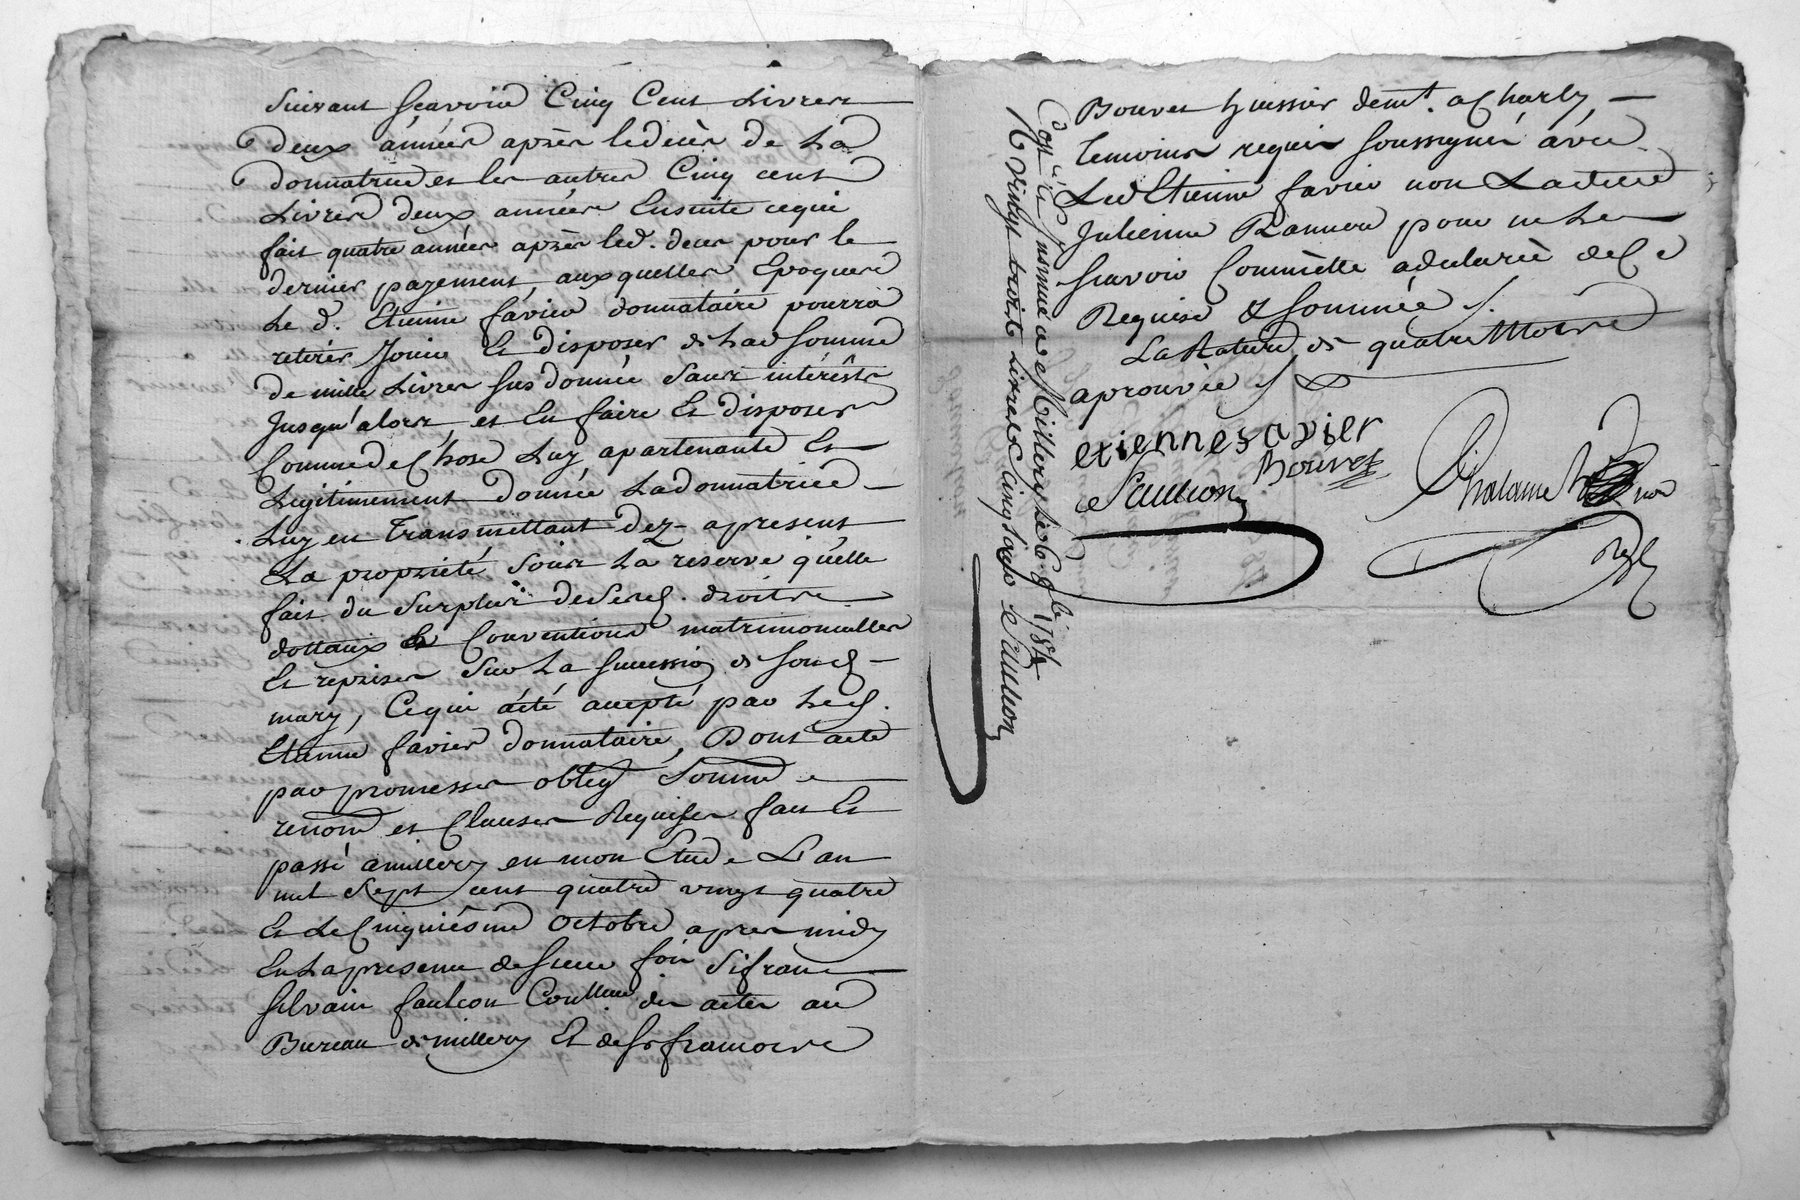 Suivant scavoir Cinq Cent Livres
deux années après ledécès de La
donnatrice et les autres Cinq cent
Livres deux années Ensuite cequi
fait quatre années après led. deces pour le
dernier payement, auxquelles Epoques
Le d. Etienne favier donnataire pourra
retirer Jouir Et disposer de Lad somme
de mille Livres sus donnée Sans intérêts
Jusqu'alors, et En faire Et disposer
Comme de Chose Luy apartenante Et
Legitimement donnée Ladonnatrice
Luy en Transmettant dez apresent
La propriété Sous La réserve qu'elle
fait du Surplus de Sesd. droits
dottaux Et Conventions matrimonialles
Et reprises Sur La Succession de Sond
mary, Cequi aété accepté par Led.
Etienne favier donnataire, Dont acte
par promesses oblig Soum
renon et Clauses Requises fait Et
passé amillery en mon Etude L'an
mil Sept cent quatre vingt quatre
Et Le Cinquiésme Octobre apres midy
En La presence de Sieur Silvain
Silvain faulcon Conlleur des actes au
Bureau de millery Et de Sr francois
Bouvet huissier demt. a Charly
temoins requis Soussignés avec
Led Etienne favier non Laditte
Julienne pour ne Le
Scavoir Comm'elle adeclaré de Ce
Requise & Sommée ./.
La Rature de quatre Mots
aprouvée ./.
etienne favier
Bouvet
Faulcon
Controllé & Insinué a Millery Le 6 8bre 1784
R vingt trois Livres Cinq Sols Faulcon